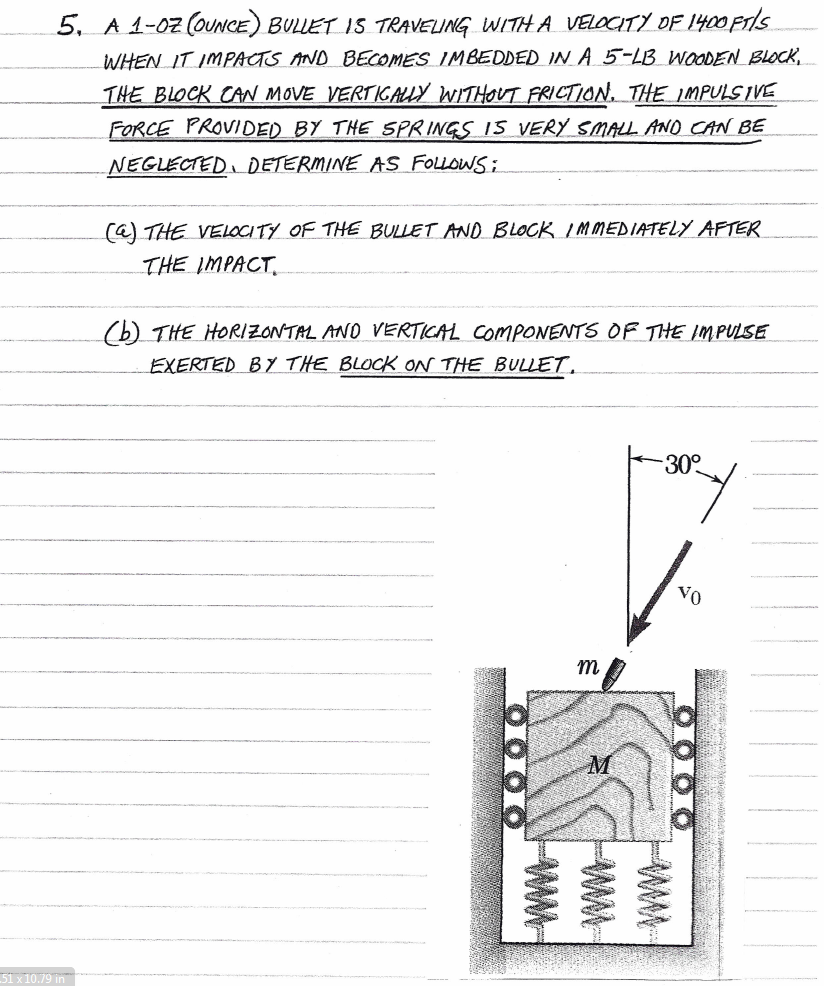 5. A 1-OZ (OUNCE) BULLET IS TRAVELING WITH A VELOCITY OF 1400 FT/S
WHEN IT IMPACTS AND BECOMES IMBEDDED IN A 5-LB WOODEN BLOCK.
THE BLOCK CAN MOVE VERTICALLY WITHOUT FRICTION. THE IMPULSIVE
FORCE PROVIDED BY THE SPRINGS IS VERY SMALL AND CAN BE
NEGLECTED. DETERMINE AS FOLLOWS:
(a) THE VELOCITY OF THE BULLET AND BLOCK IMMEDIATELY AFTER
THE IMPACT.
(b) THE HORIZONTAL AND VERTICAL COMPONENTS OF THE IMPULSE
EXERTED BY THE BLOCK ON THE BULLET.
30°
v0
m
M
51 x 10.79 in